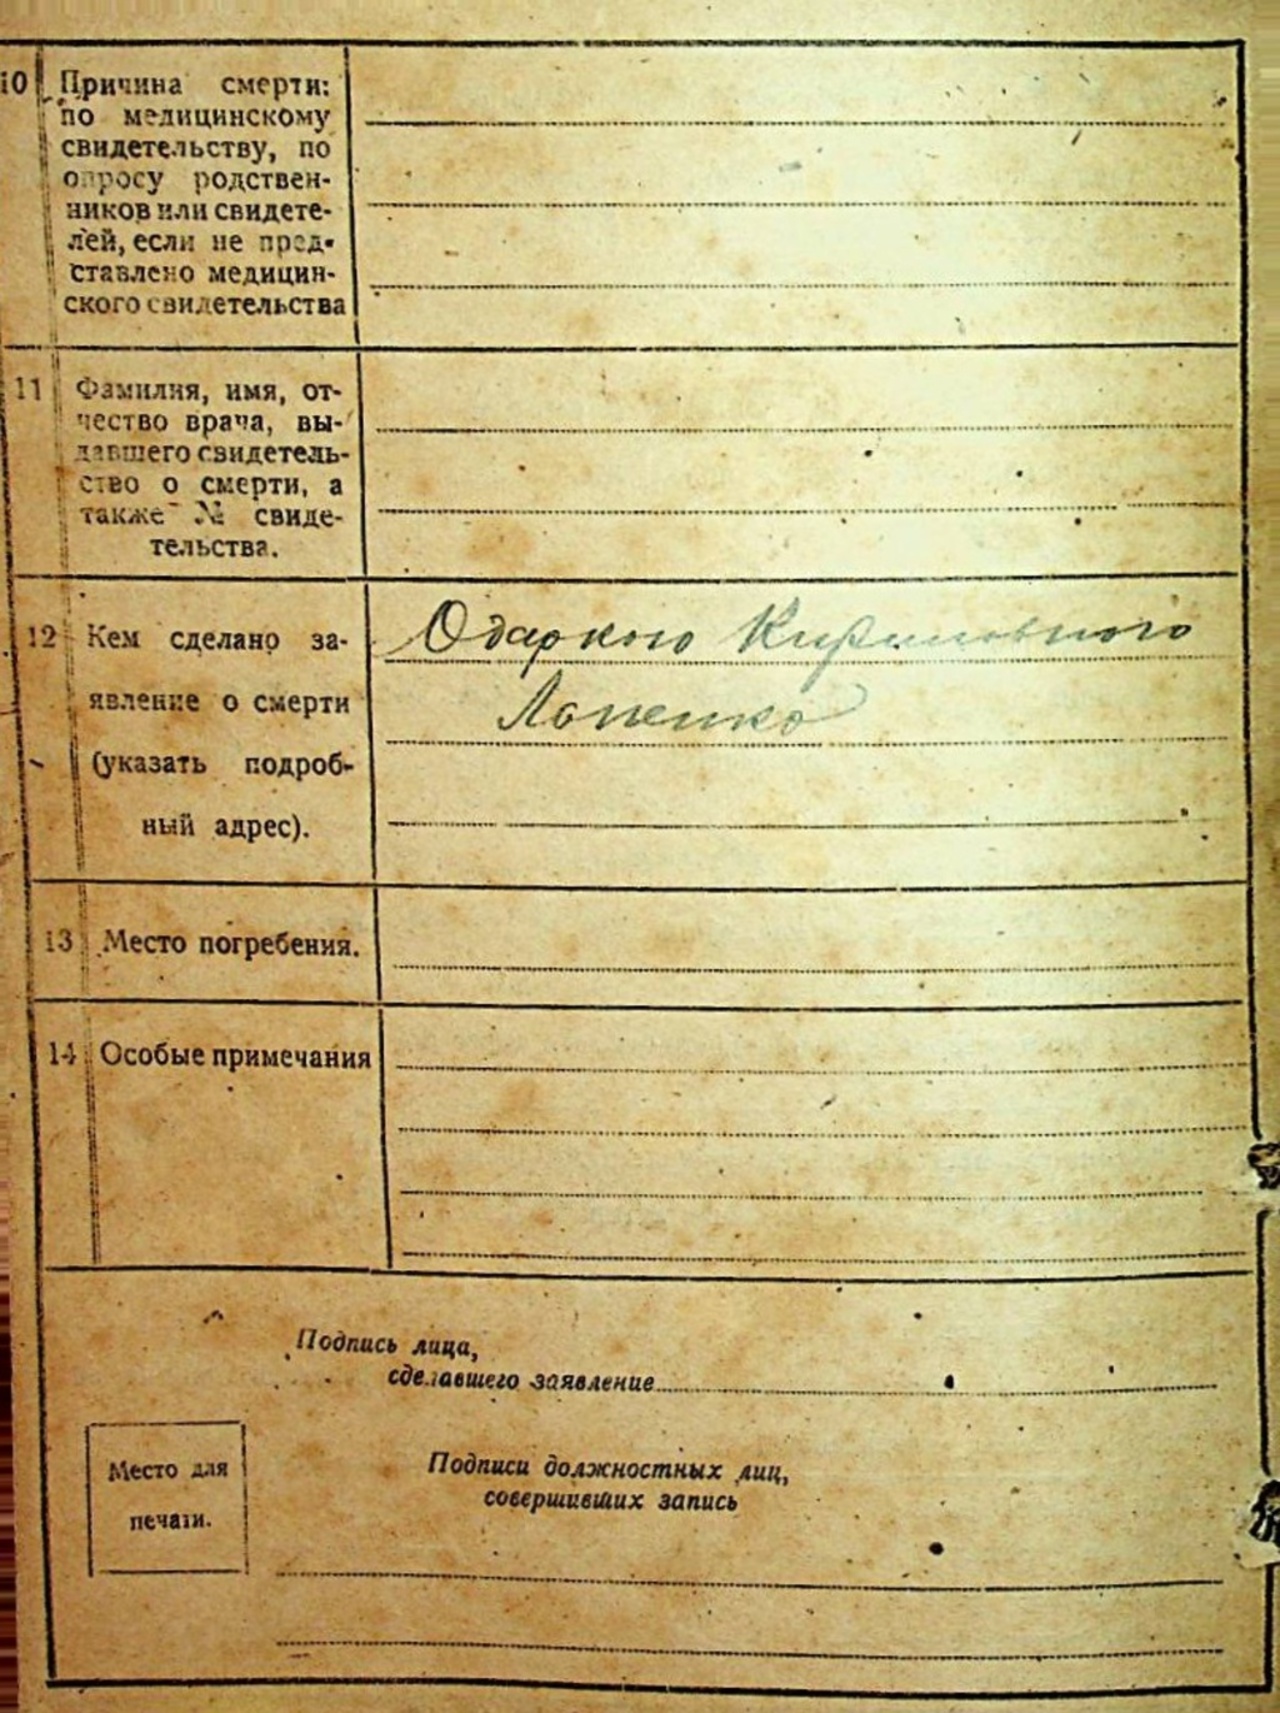 10 Причина смерти:
по медицинскому
свидетельству, по
опросу родствен-
ников или свидете-
лей, если не пред-
ставлено медицин-
ского свидетельства
11 Фамилия, имя, от-
чество врача, вы-
давшего свидетель-
ство о смерти, а
также № свиде-
тельства.
12 Кем сделано за-
явление о смерти
(указать подроб-
ный адрес).
Одаркою
Лопенко
13 Место погребения.
14 Особые примечания
Подпись лица,
сделавшего заявление
Место для
печати.
Подписи должностных лиц,
совершивших запись